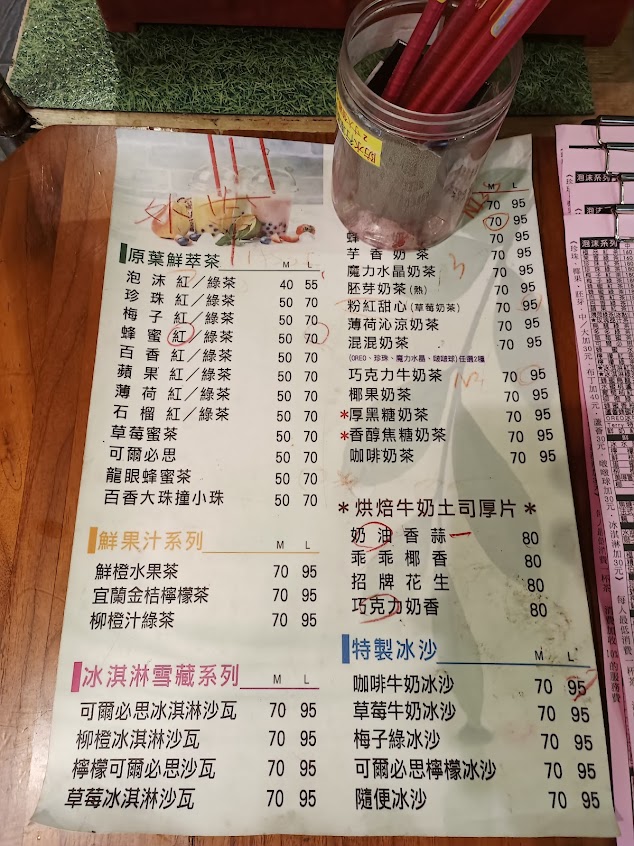 原葉鮮萃茶 M L
泡沫 紅／綠茶 40 55
珍珠 紅／綠茶 50 70
梅子 紅／綠茶 50 70
蜂蜜 紅／綠茶 50 70
百香 紅／綠茶 50 70
蘋果 紅／綠茶 50 70
薄荷 紅／綠茶 50 70
石榴 紅／綠茶 50 70
草莓蜜茶 50 70
可爾必思 50 70
龍眼蜂蜜茶 50 70
百香大珠撞小珠 50 70
鮮果汁系列 M L
鮮橙水果茶 70 95
宜蘭金桔檸檬茶 70 95
柳橙汁綠茶 70 95
冰淇淋雪藏系列 M L
可爾必思冰淇淋沙瓦 70 95
柳橙冰淇淋沙瓦 70 95
檸檬可爾必思沙瓦 70 95
草莓冰淇淋沙瓦 70 95
M L
70 95
70 95
蜂 70 95
芋香奶茶 70 95
魔力水晶奶茶 70 95
胚芽奶茶(熱) 70 95
粉紅甜心(草莓奶茶) 70 95
薄荷沁涼奶茶 70 95
混混奶茶 70 95
(OREO、珍珠、魔力水晶、啵啵球)任選2種
巧克力牛奶茶 70 95
椰果奶茶 70 95
*厚黑糖奶茶 70 95
*香醇焦糖奶茶 70 95
咖啡奶茶 70 95
*烘焙牛奶土司厚片*
奶油香蒜 80
乖乖椰香 80
招牌花生 80
巧克力奶香 80
特製冰沙 M L
咖啡牛奶冰沙 70 95
草莓牛奶冰沙 70 95
梅子綠冰沙 70 95
可爾必思檸檬冰沙 70 95
隨便冰沙 70 95
泡沫系列